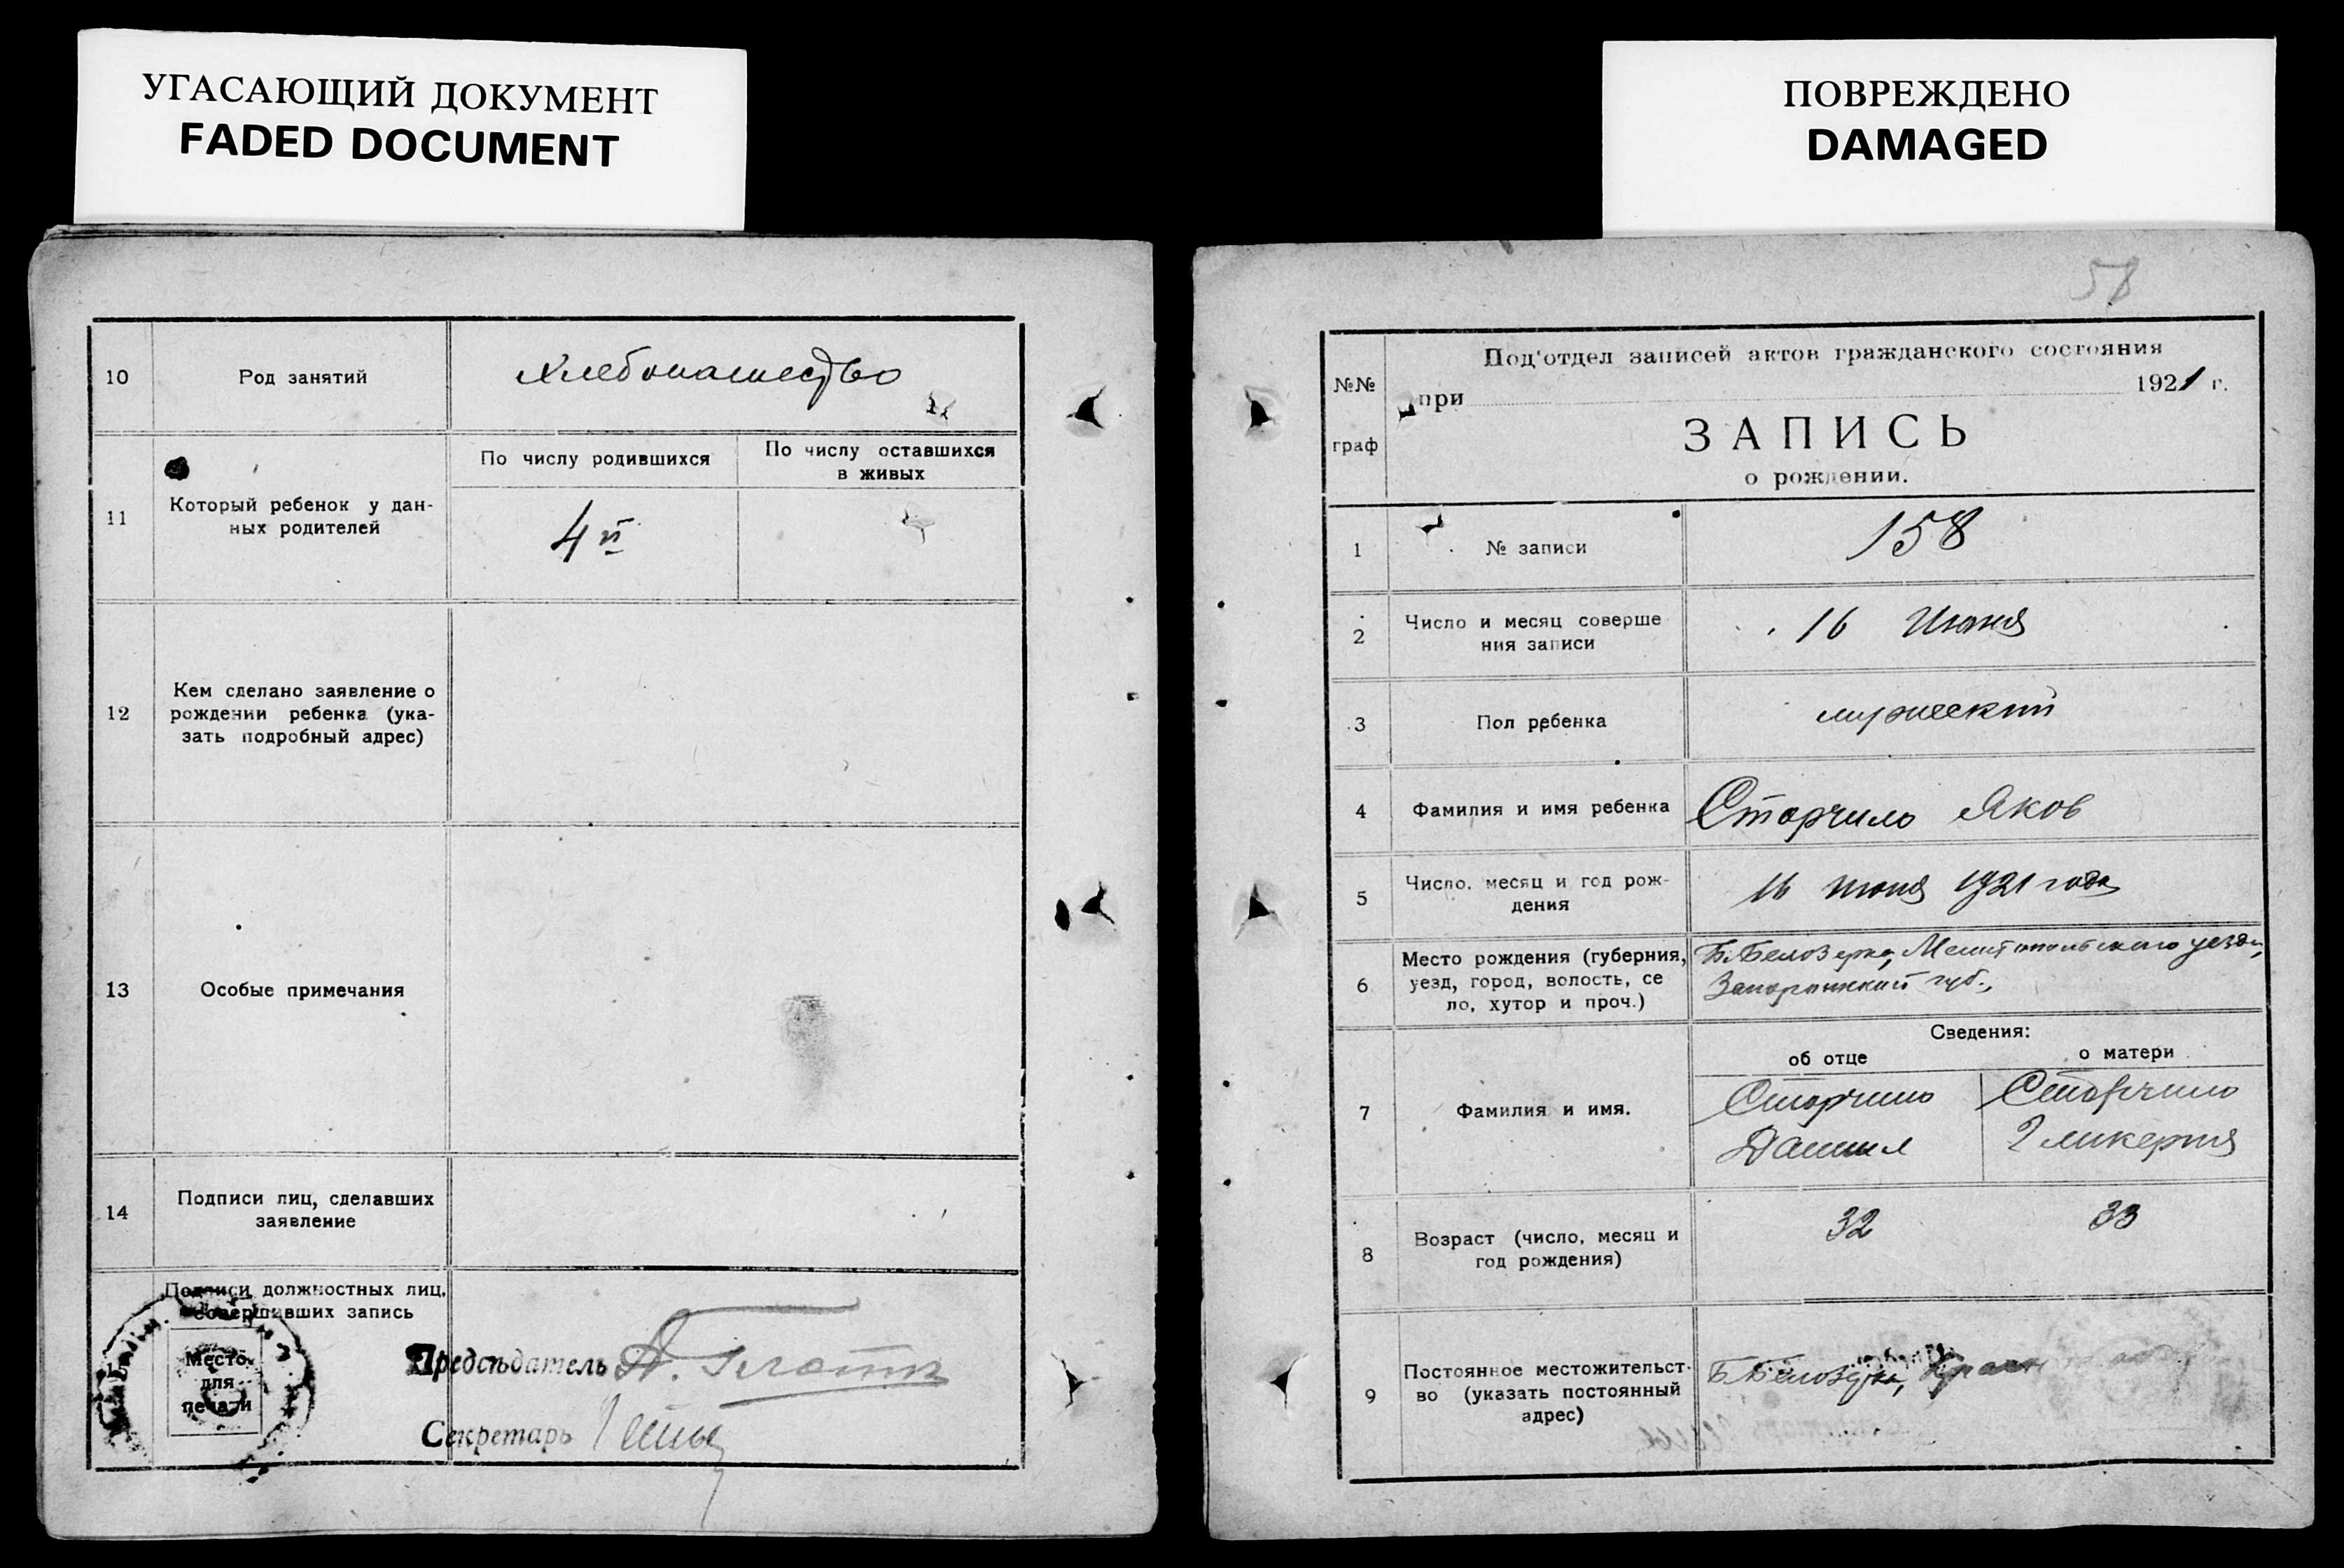 УГАСАЮЩИЙ ДОКУМЕНТ
FADED DOCUMENT
10
Род занятий
Хлебопашество
11
Который ребенок у дан-
ных родителей
По числу родившихся
По числу оставшихся
в живых
4й
12
Кем сделано заявление о
рождении ребенка (ука-
зать подробный адрес)
13
Особые примечания
14
Подписи лиц, сделавших
заявление
Подписи должностных лиц,
совершивших запись
15
Место
для
печати
Председатель
Секретарь
ПОВРЕЖДЕНО
DAMAGED
58
№№
граф
Под'отдел записей актов гражданского состояния
при 1921 г.
ЗАПИСЬ
о рождении.
1
№ записи
158
2
Число и месяц соверше
ния записи
16 Июня
3
Пол ребенка
мужеский
4
Фамилия и имя ребенка
Сторчило Яков
5
Число, месяц и год рож-
дения
16 июня 1921 года
6
Место рождения (губерния,
уезд, город, волость, се
ло, хутор и проч.)
Б. Белозерка, Мелитопольского уезда,
Запорожской губ.,
Сведения:
об отце
о матери
7
Фамилия и имя.
Сторчило
Даниил
Сторчило
Гликерия
8
Возраст (число, месяц и
год рождения)
32
33
9
Постоянное местожительст-
во (указать постоянный
адрес)
Б. Белозерка,